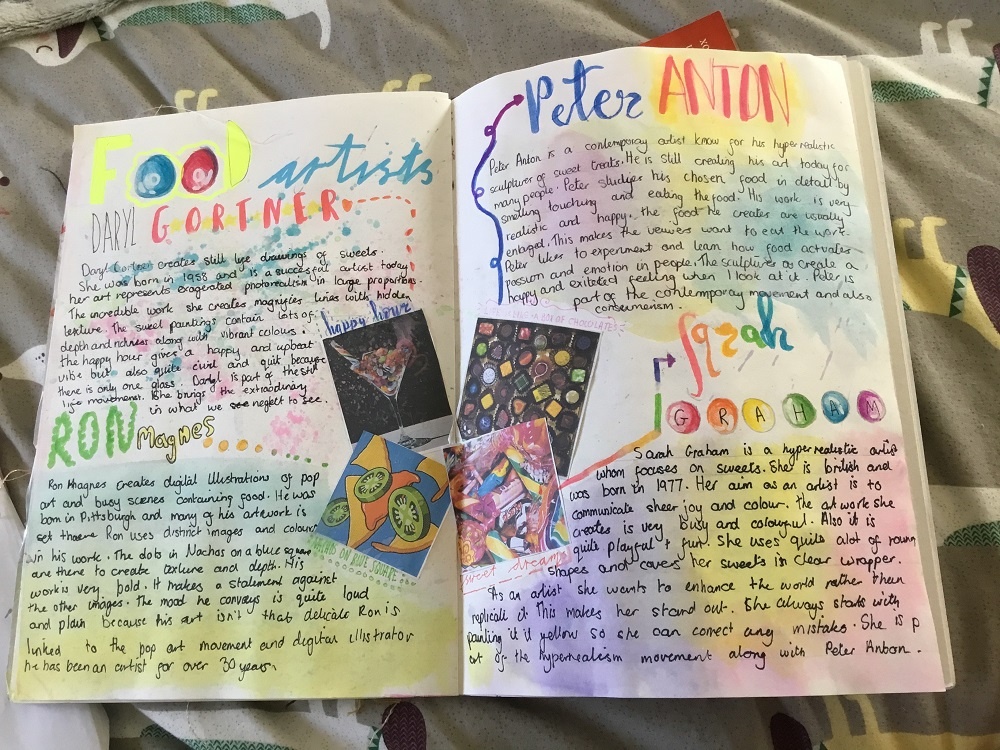 Food artists
DARYL GORTNER
Daryl Gortner creates still lye drawings of sweets.
She was born in 1958 and is a succesful artist today
her art represents exagerated photorealism in large proportions
The incredible work she creates magnifies lines with hidden
texture. The sweet paintings contain lots of
depth and richness along with vibrant colours.
the happy hour gives a happy and upbeat
vibe but also quite civil and quit because
there is only one glass. Daryl is part of the still
life movement. She brings the extraodinary
in what we see neglect to see.
happy hour
RON Magnes
Ron Magnes creates digital illustrations of pop
art and busy scenes containing food. He was
born in Pittsburgh and many of his artwork is
set there Ron uses distinct images and colour
in his work. The dots in Nachos on a blue square
are there to create texture and depth. His
work is very bold. It makes a statement against
the other images. The mood he conveys is quite loud
and plain because his art isn't that delicate Ron is
linked to the pop art movement and digital illustrator
he has been an artist for over 30 years.
ON BLUE SQUARE
Peter ANTON
Peter Anton is a contemporary artist know for his hyperrealistic
sculptures of sweet treats. He is still creating his art today for
many people. Peter studies his chosen food in detail by
smelling touching and eating the food. His work is very
realistic and happy. the food he creates are usually
enlarged. This makes the veiwers want to eat the work.
Peter likes to experiment and learn how food activates
passion and emotion in people. The sculptures as create a
happy and exitated feeling when I look at it. Peter is
part of the contemporary movement and also
consumerism.
BOX OF CHOCOLATES
Sarah
GRAHAM
Sarah Graham is a hyperrealistic artist
whom focuses on sweets. She is british and
was born in 1977. Her aim as an artist is to
communicate sheer joy and colour. the art work she
creates is very busy and colourful. Also it is
quite playful + fun. She uses quite alot of round
shapes and covers her sweets in clear wrapper.
sweet dreams
As an artist she wants to enhance the world rather then
replicate it. This makes her stand out. She always starts with
painting it it yellow so she can correct any mistake. She is p
art of the hyperrealism movement along with Peter Anton.